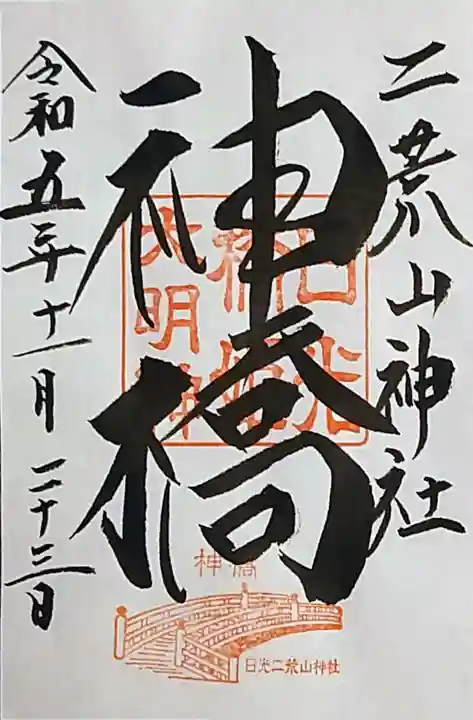 二荒山神社
神橋
日光
橋姫
大明神
令和五年十一月二十三日
神橋
日光二荒山神社